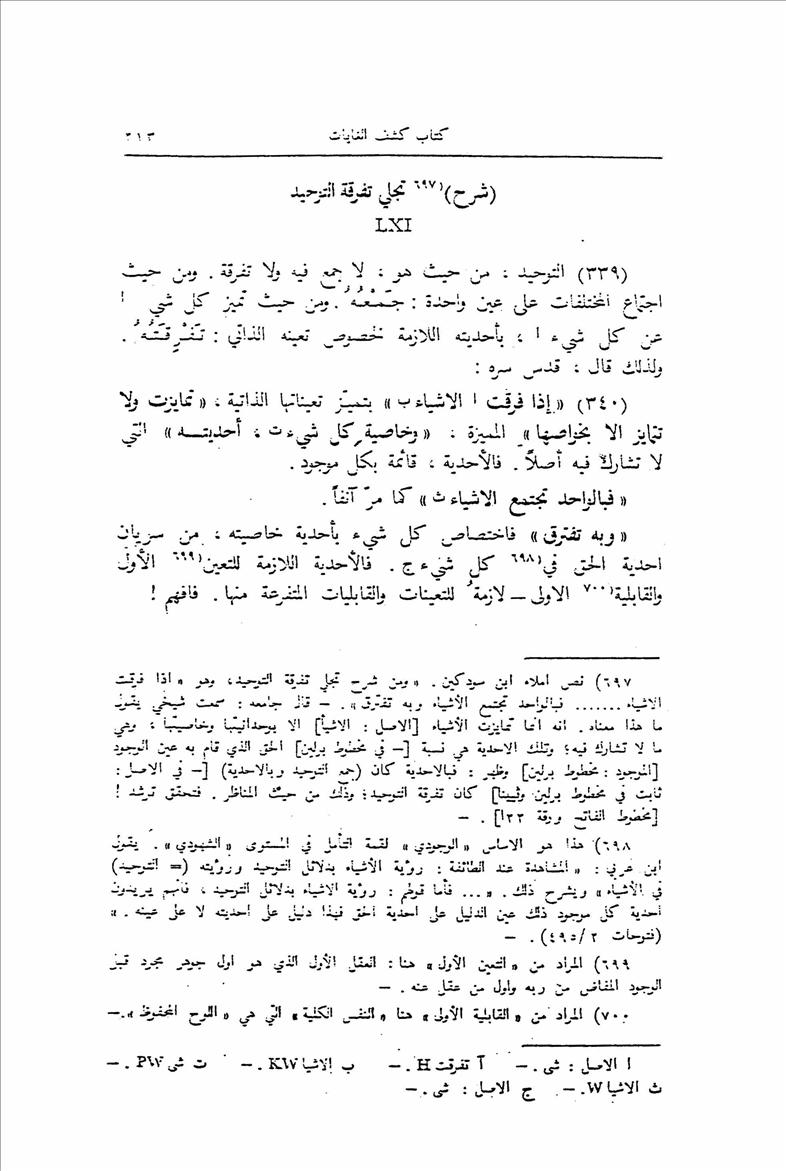 كتاب كشف الغايات ٣١٣
(شرح)⁽⁶⁹⁷ تجلي تفرقة التوحيد
LXI
(٣٣٩) التوحيد ، من حيث هو ، لا جمع فيه ولا تفرقة . ومن حيث
اجتماع المختلفات على عين واحدة : جَمْعُهُ . ومن حيث تميز كل شي ا
عن كل شيء ا ، بأحديته اللازمة لخصوص تعينه الذاتي : تَفْرِقَتُهُ .
ولذلك قال ، قدس سره :
(٣٤٠) « إذا فرقت آ الاشياء ب » بتميّز تعيناتها الذاتية ، « تمايزت ولا
تتمايز الا بخواصها » المميزة ، « وخاصية كل شيء ت ، أحديتــه » التي
لا تشارك فيه أصلاً . فالأحدية ، قائمة بكل موجود .
« فبالواحد تجتمع الاشياء ث » كما مرّ آنفاً .
« وبه تفترق » فاختصاص كل شيء بأحدية خاصيته ، من سريان
احدية الحق في⁽٦٩٨ كل شيء ج . فالأحدية اللازمة للتعين⁽٦٩٩ الأول
والقابلية⁽٧٠٠ الاولى ــ لازمةٌ للتعينات والقابليات المتفرعة منها . فافهم !
٦٩٧) نص املاء ابن سودكين . « ومن شرح تجلي تفرقة التوحيد، وهو « اذا فرقت
الاشياء ....... فبالواحد تجتمع الأشياء وبه تفترق » . – قال جامعه : سمعت شيخي يقول
ما هذا معناه . انه انما تمايزت الأشياء [الاصل : الاشيأ] الا بوحدانيتها وخاصيتها ، وهي
ما لا تشارك فيه؛ وتلك الاحدية هي نسبة [– في مخطوط برلين] الحق الذي قام به عين الوجود
[الموجود : مخطوط برلين] وظهر : فبالاحدية كان (جمع التوحيد وبالاحدية) [– في الاصل :
ثابت في مخطوط برلين وفيينا] كان تفرقة التوحيد؛ وذلك من حيث المناظر . فتحقق ترشد !
[مخطوط الفاتح ورقة ٢٢ا] . –
٦٩٨) هذا هو الاساس « الوجودي » لقمة التأمل في المستوى « الشهودي » . يقول
ابن عربي : « المشاهدة عند الطائفة : رؤية الأشياء بدلائل التوحيد ورؤيته (= التوحيد)
في الأشياء » ويشرح ذلك . « ... فأما قولهم : رؤية الاشياء بدلائل التوحيد ، فانهم يريدون
أحدية كل موجود ذلك عين الدليل على احدية الحق فهذا دليل على أحديته لا على عينه . »
(فتوحات ٢/٤٩٥) . –
٦٩٩) المراد من « التعين الأول » هنا : العقل الأول الذي هو اول جوهر مجرد قبل
الوجود المفاض من ربه واول من عقل عنه . –
٧٠٠) المراد من « القابلية الأولى » هنا « النفس الكلية » التي هي « اللوح المحفوظ ».–
ا الاصل : شى . – آ تفرقت H . – ب الاشيا KW . – ت شى PW . –
ث الاشيا W . – ج الاصل : شى . –